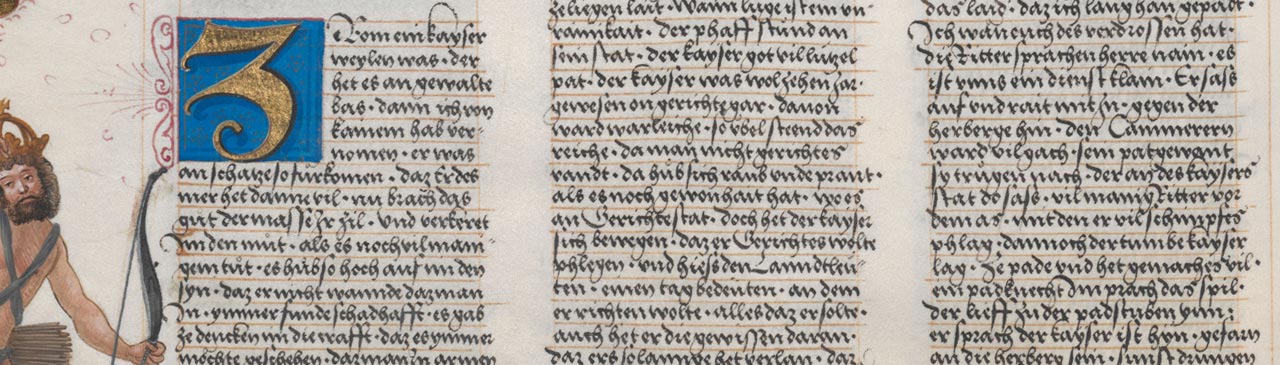 Z Rom ein kayser
weylen was · der
het es an gewalte
bas · dann ich von
kainem hab ver-
nomen · er was
an schatze so furkomen · daz Er des
mer het dann vil · nu brach das
gůt der mass Jr zil · Und verkeret
Jm den můt · als es noch vil mani-
gem tůt · es hůb so hoch auf im den
syn · daz er nicht wannde daz man
In · ymmer funde schadhafft · es gab
ze dencken im die crafft · daz es ymmer
möchte geschehen · daz man In armen
ze ligen lait · Wann luge ist ein un-
rainikait · der phaff stund an
sein stat · der kayser got vil lützel
pat · der kayser was wol zehen Jar ·
gewesen on gerichte gar · dauon
ward warleiche · so übel steend das
reiche · da man nicht gerichtes
vandt · da hůb sich raub unde prant ·
als es noch gewonhait hat · wo es
an Gerichte stat · doch het der kayser
sich bewegen · daz er Gerichtes wolte
phlegen · und hiess den Lanndtleu-
ten · einen tag bedeuten · an dem
er richten wolte · alles daz er solte ·
auch het er die gewissen daran ·
daz ers so lannge het verlan · daz
das laid · daz ich lang han gepadt ·
Ich wän euch des verdrossen hat ·
die Ritter sprachen herre nain · es
ist unns ein dienst klain · Er sass
auf und rait mit Jn · gegen der
herberge hin · den Cammerern
ward vil gach · sein patgewant
sy trůgen nach · der an des kaysers
stat do sass · vil manig Ritter vor
dem as · mit den er vil schimpfes
phlag · dannoch der tumbe kayser
lag · ze pade und het gemaches vil ·
ein padknecht Im prach das spil ·
der lieff zu der padstuben ynn ·
er sprach der kayser ist hyn · gefarn
an die herberg sein · sunst drungen